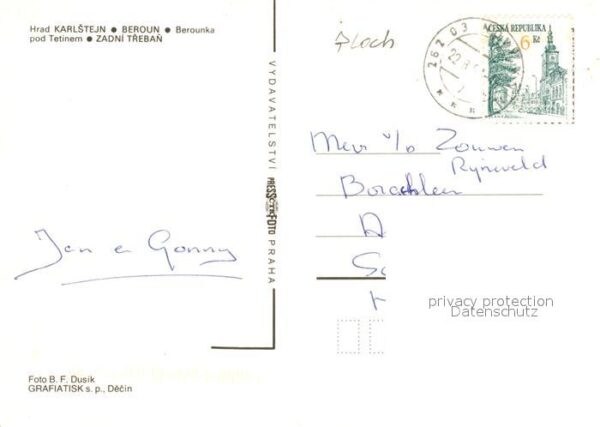 Hrad KARLŠTEJN ● BEROUN ● Berounka
pod Tetínem ● ZADNÍ TŘEBAŇ
VYDAVATELSTVÍ PRESSFOTO PRAHA
Jan en Gonny
Foto B. F. Dusík
GRAFIATISK s. p., Děčín
262 03
ČESKÁ REPUBLIKA
6 Kč
Mevr v/o Zouwen
Rijneveld
privacy protection
Datenschutz